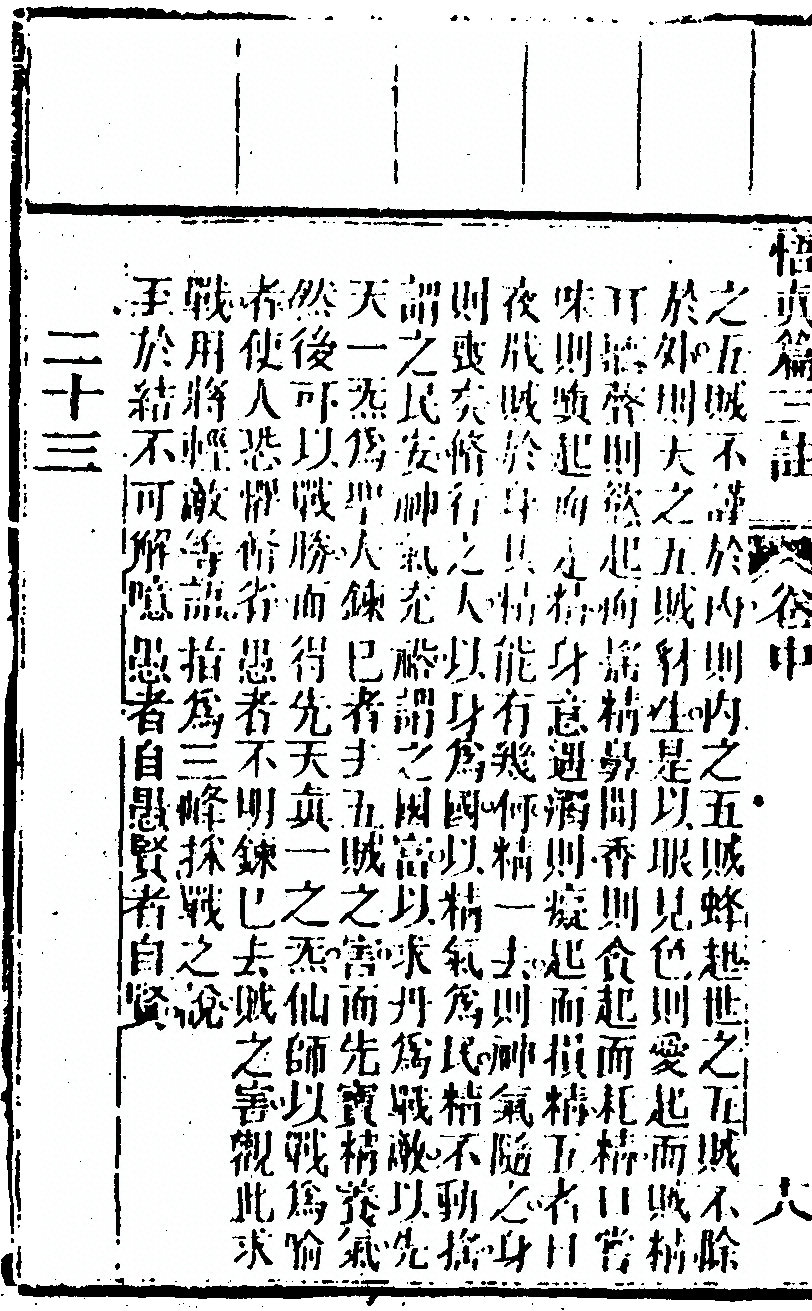 悟真篇三註 卷中 八
之五賊不謹於內則內之五賊蜂起世之五賊不除
於外則天之五賊豺生是以眼見色則愛起而賊精
耳聽聲則慾起而搖精鼻聞香則貪起而耗精口嘗
味則嗔起而走精身意遇觸則癡起而損精五者日
夜戕賊於身其精能有幾何精一去則神氣隨之身
則喪矣修行之人以身為國以精氣為民精不動搖
謂之民安神氣充裕謂之國富以求丹為戰敵以先
天一炁為聖人鍊己者去五賊之害而先寶精養氣
然後可以戰勝而得先天真一之炁仙師以戰為喻
者使人恐懼修省愚者不明鍊己去賊之害觀此求
戰用將輕敵等語指為三峰採戰之說
至於結不可解噫愚者自愚賢者自賢
二十三